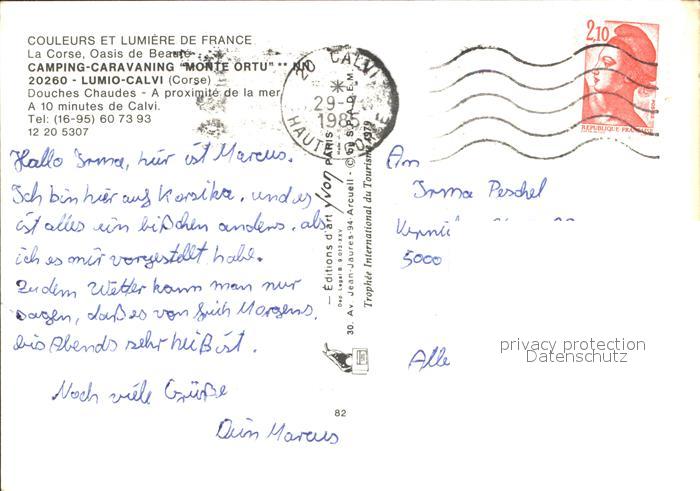 COULEURS ET LUMIÈRE DE FRANCE
La Corse, Oasis de Beauté
CAMPING-CARAVANING "MONTE ORTU" ** NN
20260 - LUMIO-CALVI (Corse)
Douches Chaudes - A proximité de la mer
A 10 minutes de Calvi.
Tel: (16-95) 60 73 93
12 20 5307
Hallo Irma, hier ist Marcus.
Ich bin hier auf Korsika, und es
ist alles ein bißchen anders, als
ich es mir vorgestellt habe.
Zu dem Wetter kann man nur
sagen, daß es von früh Morgens,
bis Abends sehr heiß ist.
Noch viele Grüße
Dein Marcus
20 CALVI
29-
1985
HAUTE CORSE
— Éditions d'art Yvon PARIS
Dep. Legal B. 9 012-XXV
30. Av. Jean-Jaures-94-Arcueil - © by S.P.A.D.E.M.
Trophée International du Tourisme 1979
82
2,10
REPUBLIQUE FRANÇAISE
An
Irma Peschel
5000
privacy protection
Datenschutz